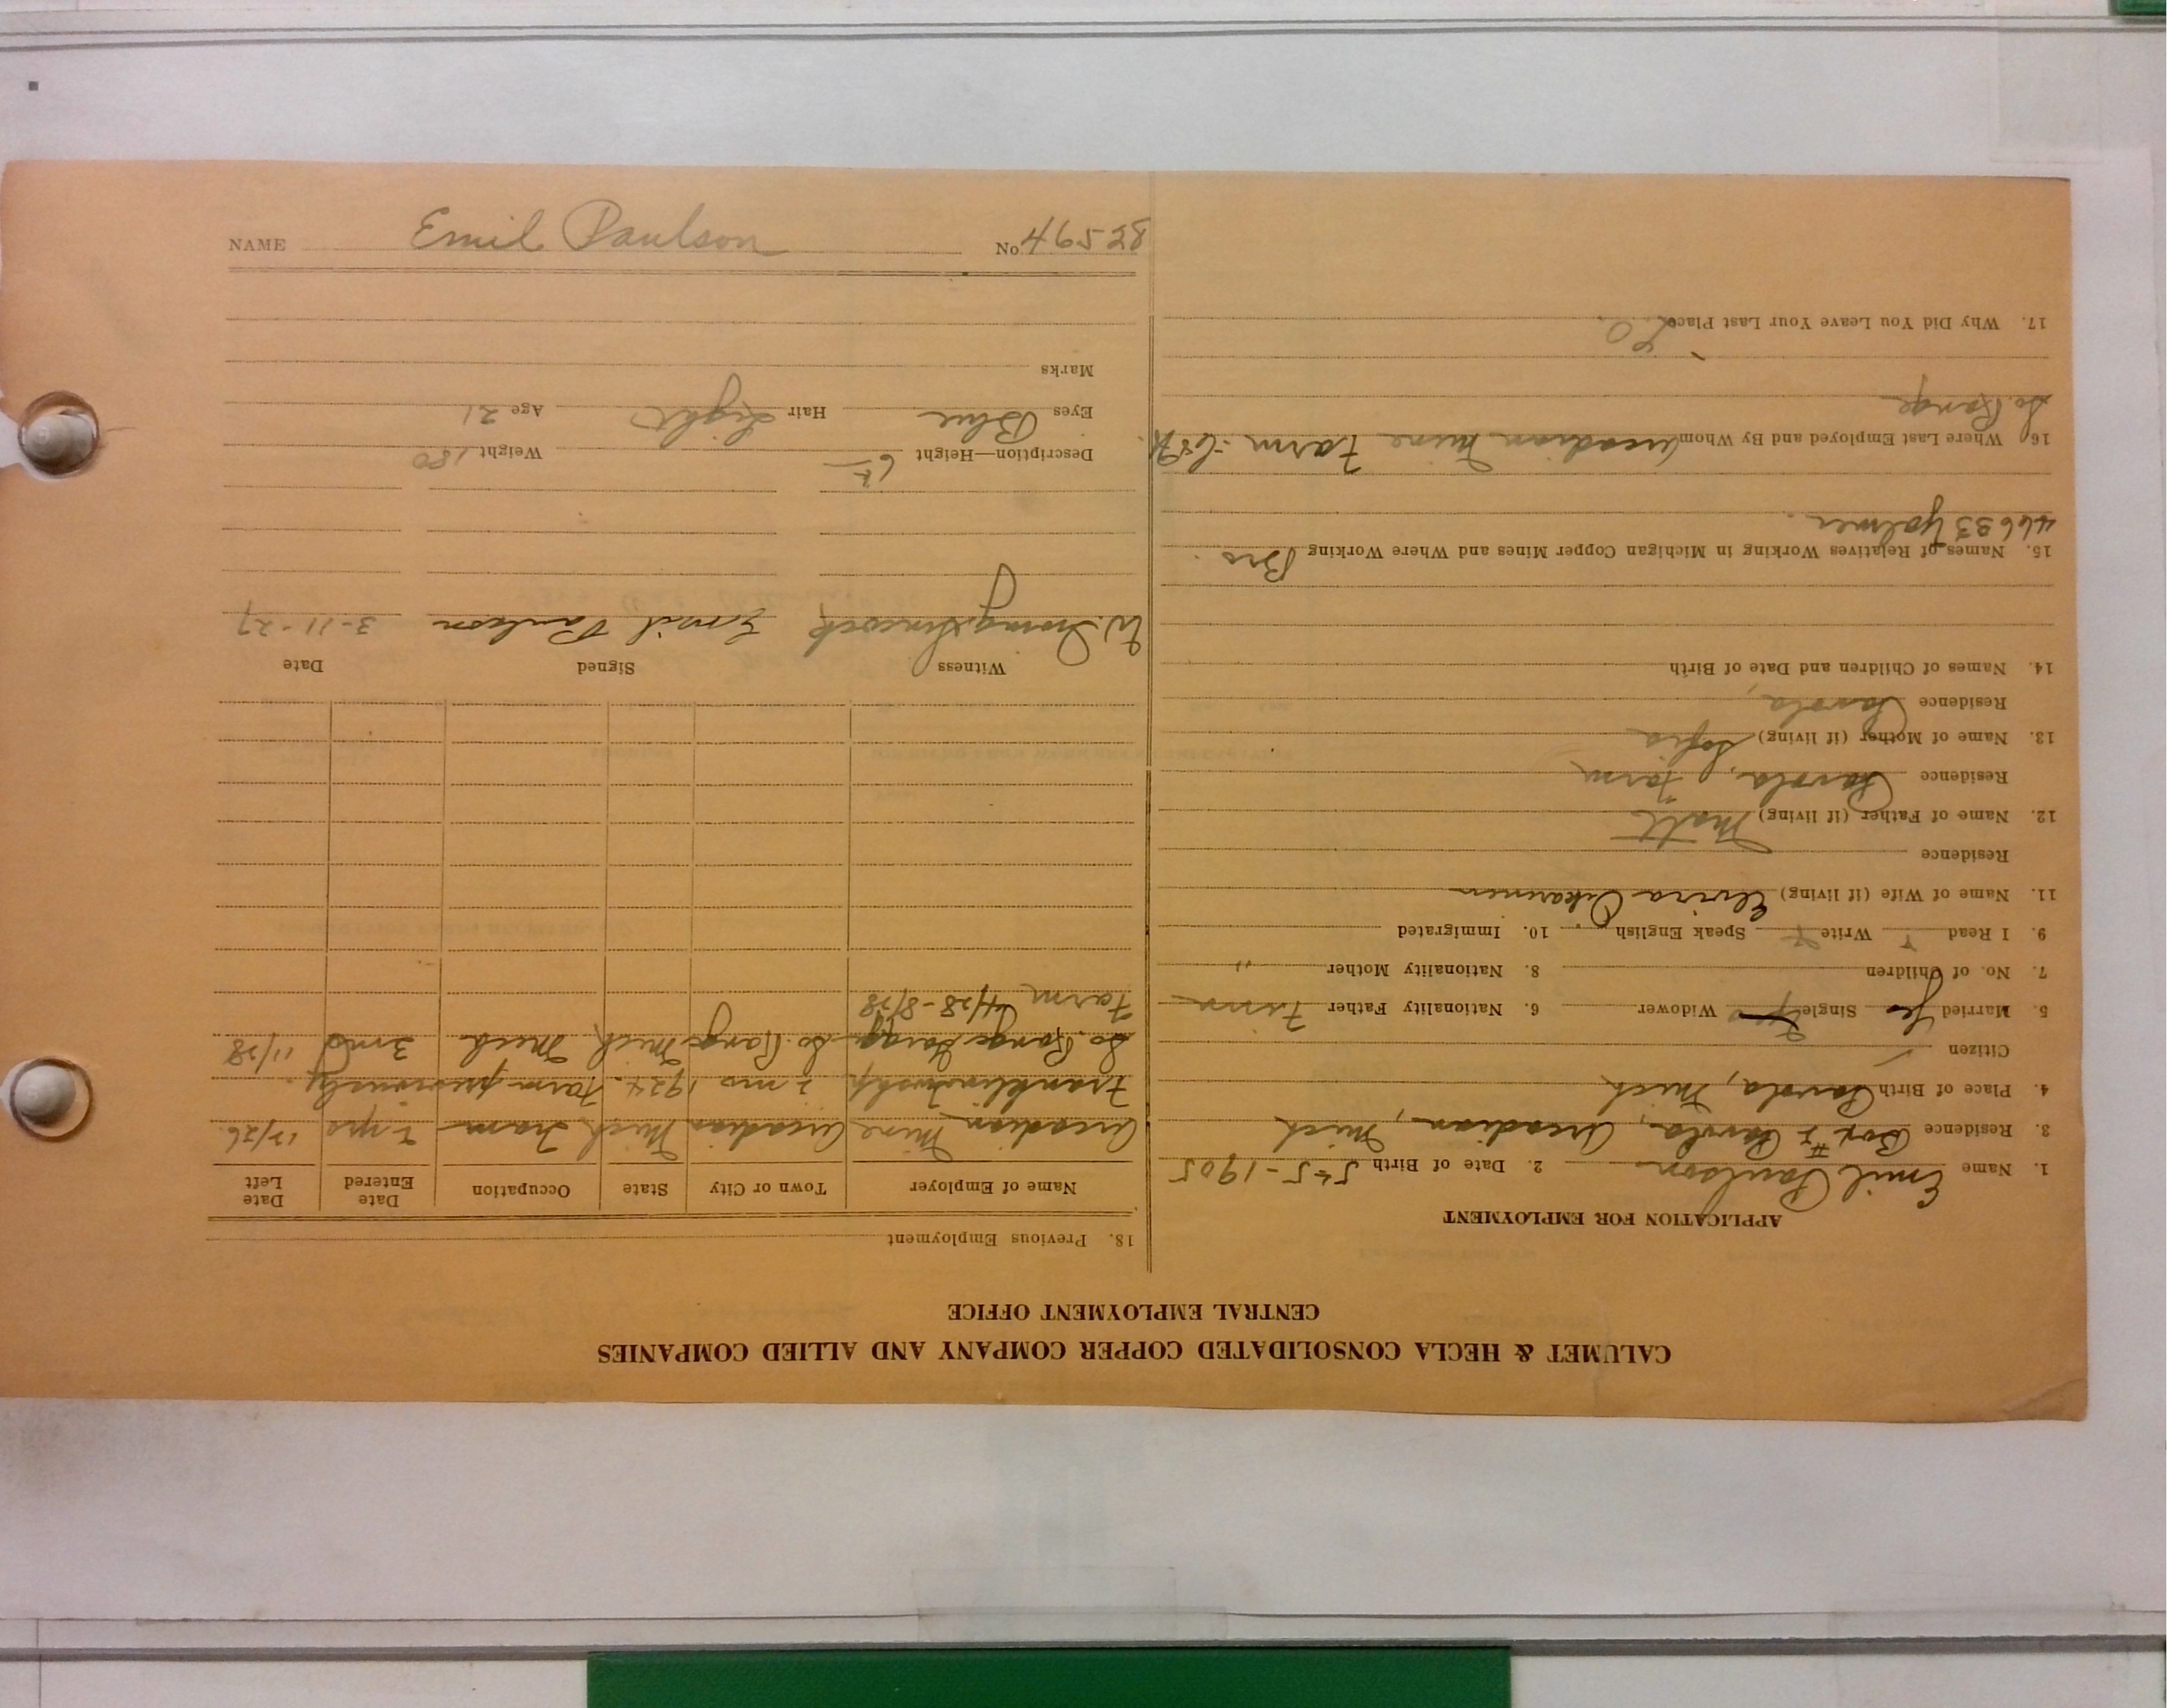 NAME Emil Paulson No. 46528
CALUMET & HECLA CONSOLIDATED COPPER COMPANY AND ALLIED COMPANIES
CENTRAL EMPLOYMENT OFFICE
APPLICATION FOR EMPLOYMENT
1. Name Emil Paulson 2. Date of Birth 5-5-1905
3. Residence Box # Paavola, Arcadian, Mich
4. Place of Birth Paavola, Mich
Citizen
5. Married Yes Single Widower 6. Nationality Father Finn
7. No. of Children 8. Nationality Mother "
9. I Read Y Write Y Speak English 10. Immigrated
11. Name of Wife (if living) Elvira
Residence
12. Name of Father (if living) Matt
Residence Paavola, Farm
13. Name of Mother (if living) Sofia
Residence Paavola
14. Names of Children and Date of Birth
15. Names of Relatives Working in Michigan Copper Mines and Where Working Bro
46633 Hjalmer.
16 Where Last Employed and By Whom Arcadian Mine Farm
So. Range
17. Why Did You Leave Your Last Place
18. Previous Employment
Name of Employer Town or City State Occupation Date Entered Date Left
Arcadian Mine Arcadian Mich Tram 2 yrs 12/26
Franklin 2 mo 1924. Farm previously.
So. Range Garage So. Range Mich Mech 3 mo 11/28
Farm 4/28-8/28
Witness Signed Date
W. Irving Hincock Emil Paulson 3-11-27
Description—Height 6 ft Weight 180
Eyes Blue Hair Light Age 21
Marks